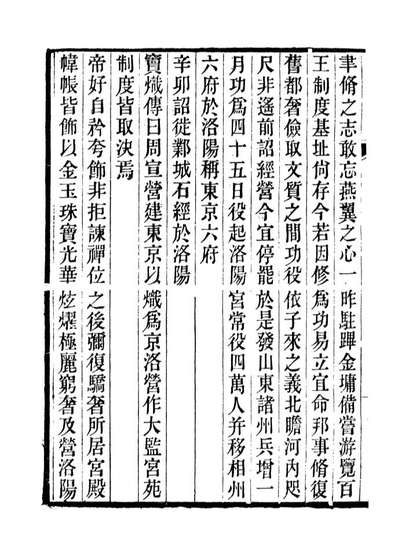 聿脩之志敢忘燕翼之心一昨駐蹕金墉備嘗游覽百
王制度基址尚存今若因修爲功易立宜命邦事脩復
舊都奢儉取文質之間功役依子來之義北瞻河內咫
尺非遙前詔經營今宜停罷於是發山東諸州兵增一
月功爲四十五日役起洛陽宮常役四萬人并移相州
六府於洛陽稱東京六府
辛卯詔徙鄴城石經於洛陽
竇熾傳曰周宣營建東京以熾爲京洛營作大監宮苑
制度皆取決焉
帝好自矜夸飾非拒諫禪位之後彌復驕奢所居宮殿
幃帳皆飾以金玉珠寶光華炫燿極麗窮奢及營洛陽